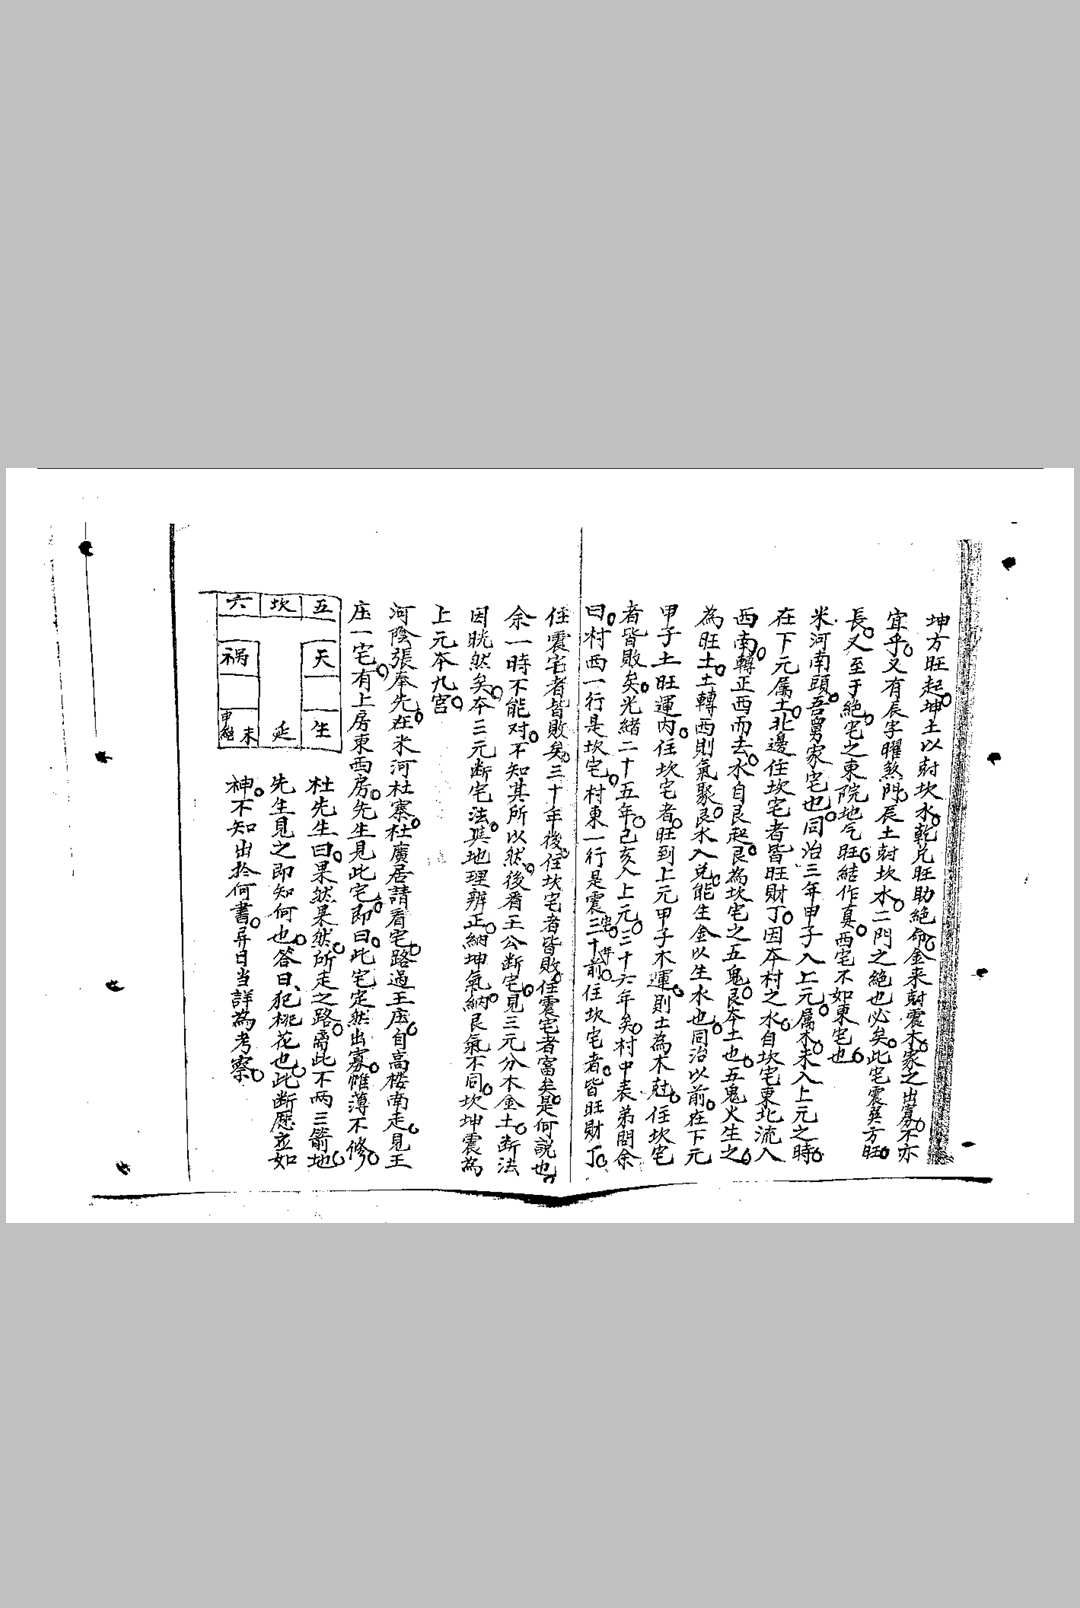 坤方旺起。坤土以尅坎水。乾兌旺助絕命金来尅震木。家之出寡。不亦
宜乎。又有辰字曜煞門。辰土尅坎水。二門之絕也必矣。此宅震巽方旺
長。又至于絕。宅之東院地气旺結作真。西宅不如東宅也。
米河南頭。吾舅家宅也。同治三年甲子入上元。属木。未入上元之時。
在下元属土。北邊住坎宅者皆旺財丁。因本村之水。自坎宅東北流入
西南。轉正西而去。水自艮起。艮為坎宅之五鬼。艮本土也。五鬼火生之。
為旺土。土轉西則氣聚。艮水入兌。能生金以生水也。同治以前。在下元
甲子土旺運內。住坎宅者。旺到上元甲子木運。則土為木尅。住坎宅
者皆敗矣。光緒二十五年。己亥入上元。三十六年矣。村中表弟問余
曰。村西一行是坎宅。村東一行是震宅。三十年前。住坎宅者。皆旺財丁。
住震宅者皆敗矣。三十年後。住坎宅者皆敗。住震宅者富矣。是何說也。
余一時不能对。不知其所以然。後看王公断宅。見三元分木金土。断法
因晄然矣。本三元断宅法。與地理辨正。納坤氣。納艮氣不同。坎坤震為
上元本九宫。
河陰張奉先。在米河杜寨。杜廣居請看宅。路過王庄。自高楼南走。見王
庄一宅。有上房東西房。先生見此宅。即曰。此宅定然出寡。帷薄不修。
杜先生曰。果然果然。所走之路。离此不两三箭地。
先生見之即知何也。答曰、犯桃花也。此断應立如
神。不知出於何書。异日当詳為考察。
五 坎 六
天 祸
生 延 未 申絕